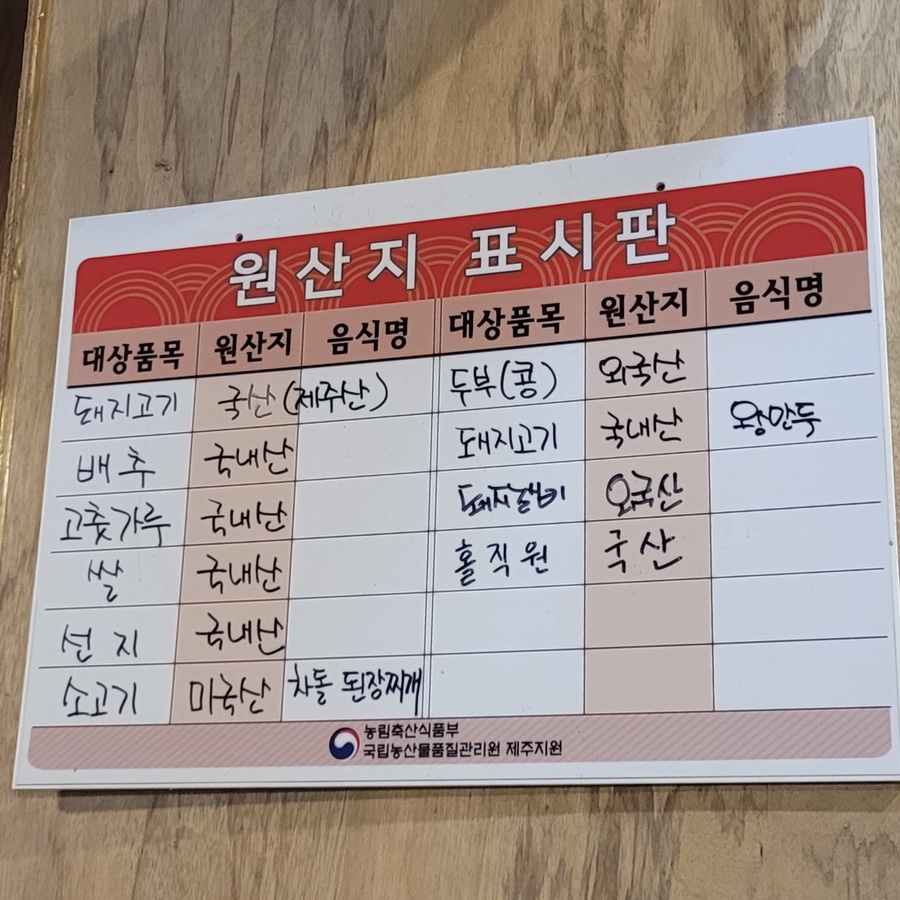 원산지 표시판
대상품목 원산지 음식명 대상품목 원산지 음식명
돼지고기 국산 (제주산) 두부(콩) 외국산
배추 국내산 돼지고기 국내산 왕만두
고춧가루 국내산 돼지갈비 외국산
쌀 국내산 홀직원 국산
선지 국내산
소고기 미국산 차돌 된장찌개
농림축산식품부
국립농산물품질관리원 제주지원